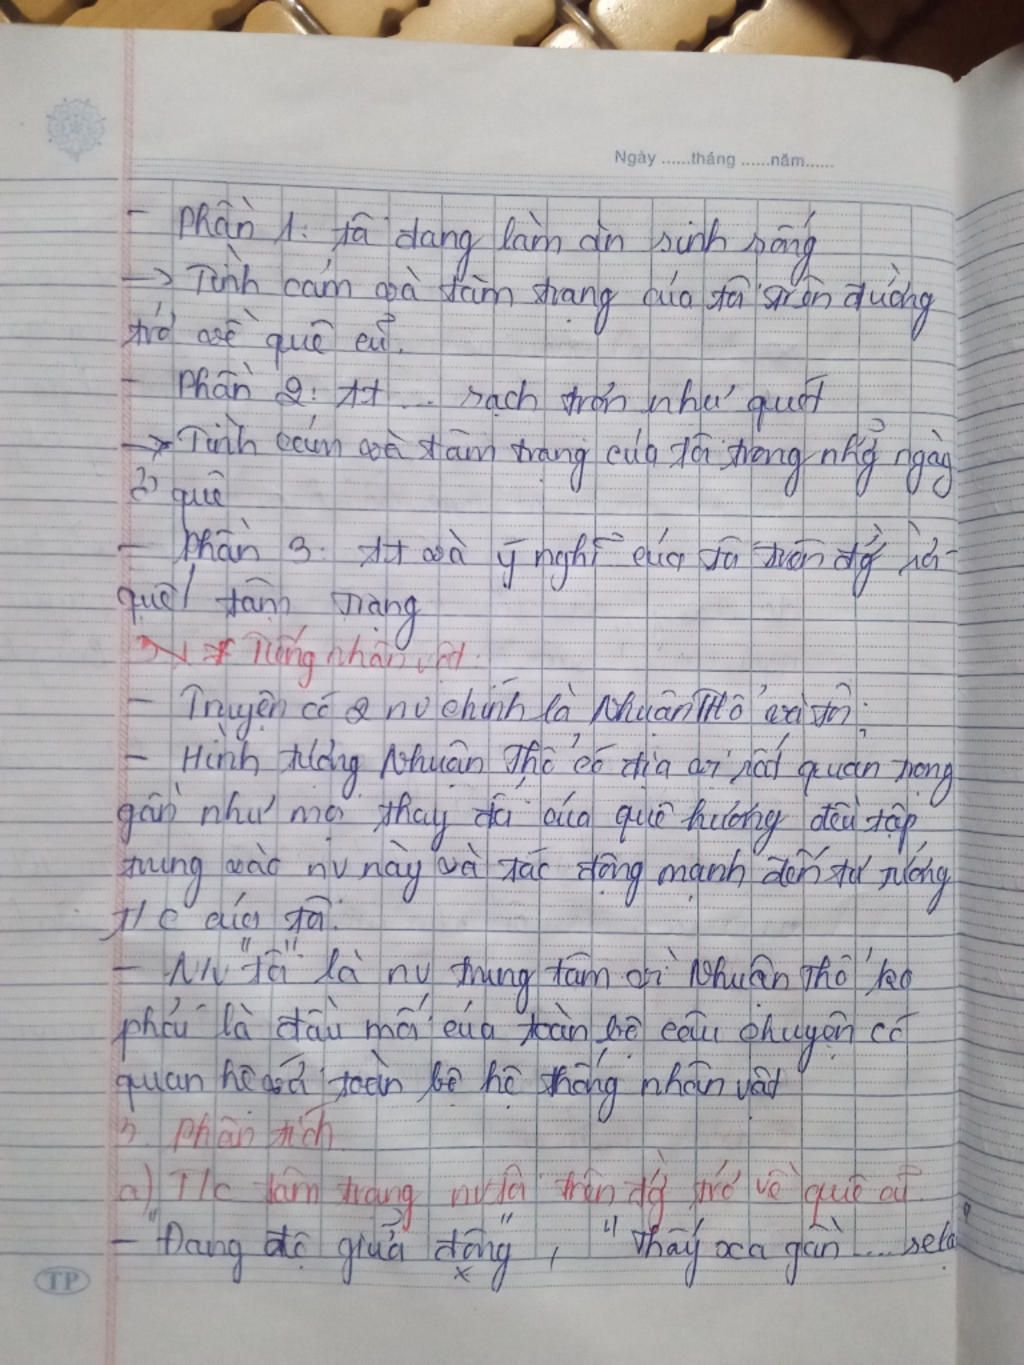 Ngày ......tháng ......năm......
- Phần 1: từ đang làm ăn sinh sống
-> Tình cảm và tâm trạng của tôi trên đường
trở về quê cũ.
- Phần 2: tt ... sạch trơn như quét
-> Tình cảm và tâm trạng của tôi trong nhg ngày
ở quê
- Phần 3: tt và ý nghĩ của tôi trên đg rời
quê / tâm trạng
* Tuyến nhân vật.
- Truyện có 2 nv chính là Nhuận Thổ và tôi.
- Hình tượng Nhuận Thổ có địa vị rất quan trọng
gần như mọi thay đổi của quê hương đều tập
trung vào nv này và tác động mạnh đến tư tưởng
T/c của tôi.
- NV "tôi" là nv trung tâm vì Nhuận Thổ
là đầu mối của toàn bộ câu chuyện có
quan hệ với toàn bộ hệ thống nhân vật
3. Phân tích
a) T/c tâm trạng nv tôi trên đg trở về quê cũ.
- "Đang độ giữa đông", "Thấy xa gần ...
TP